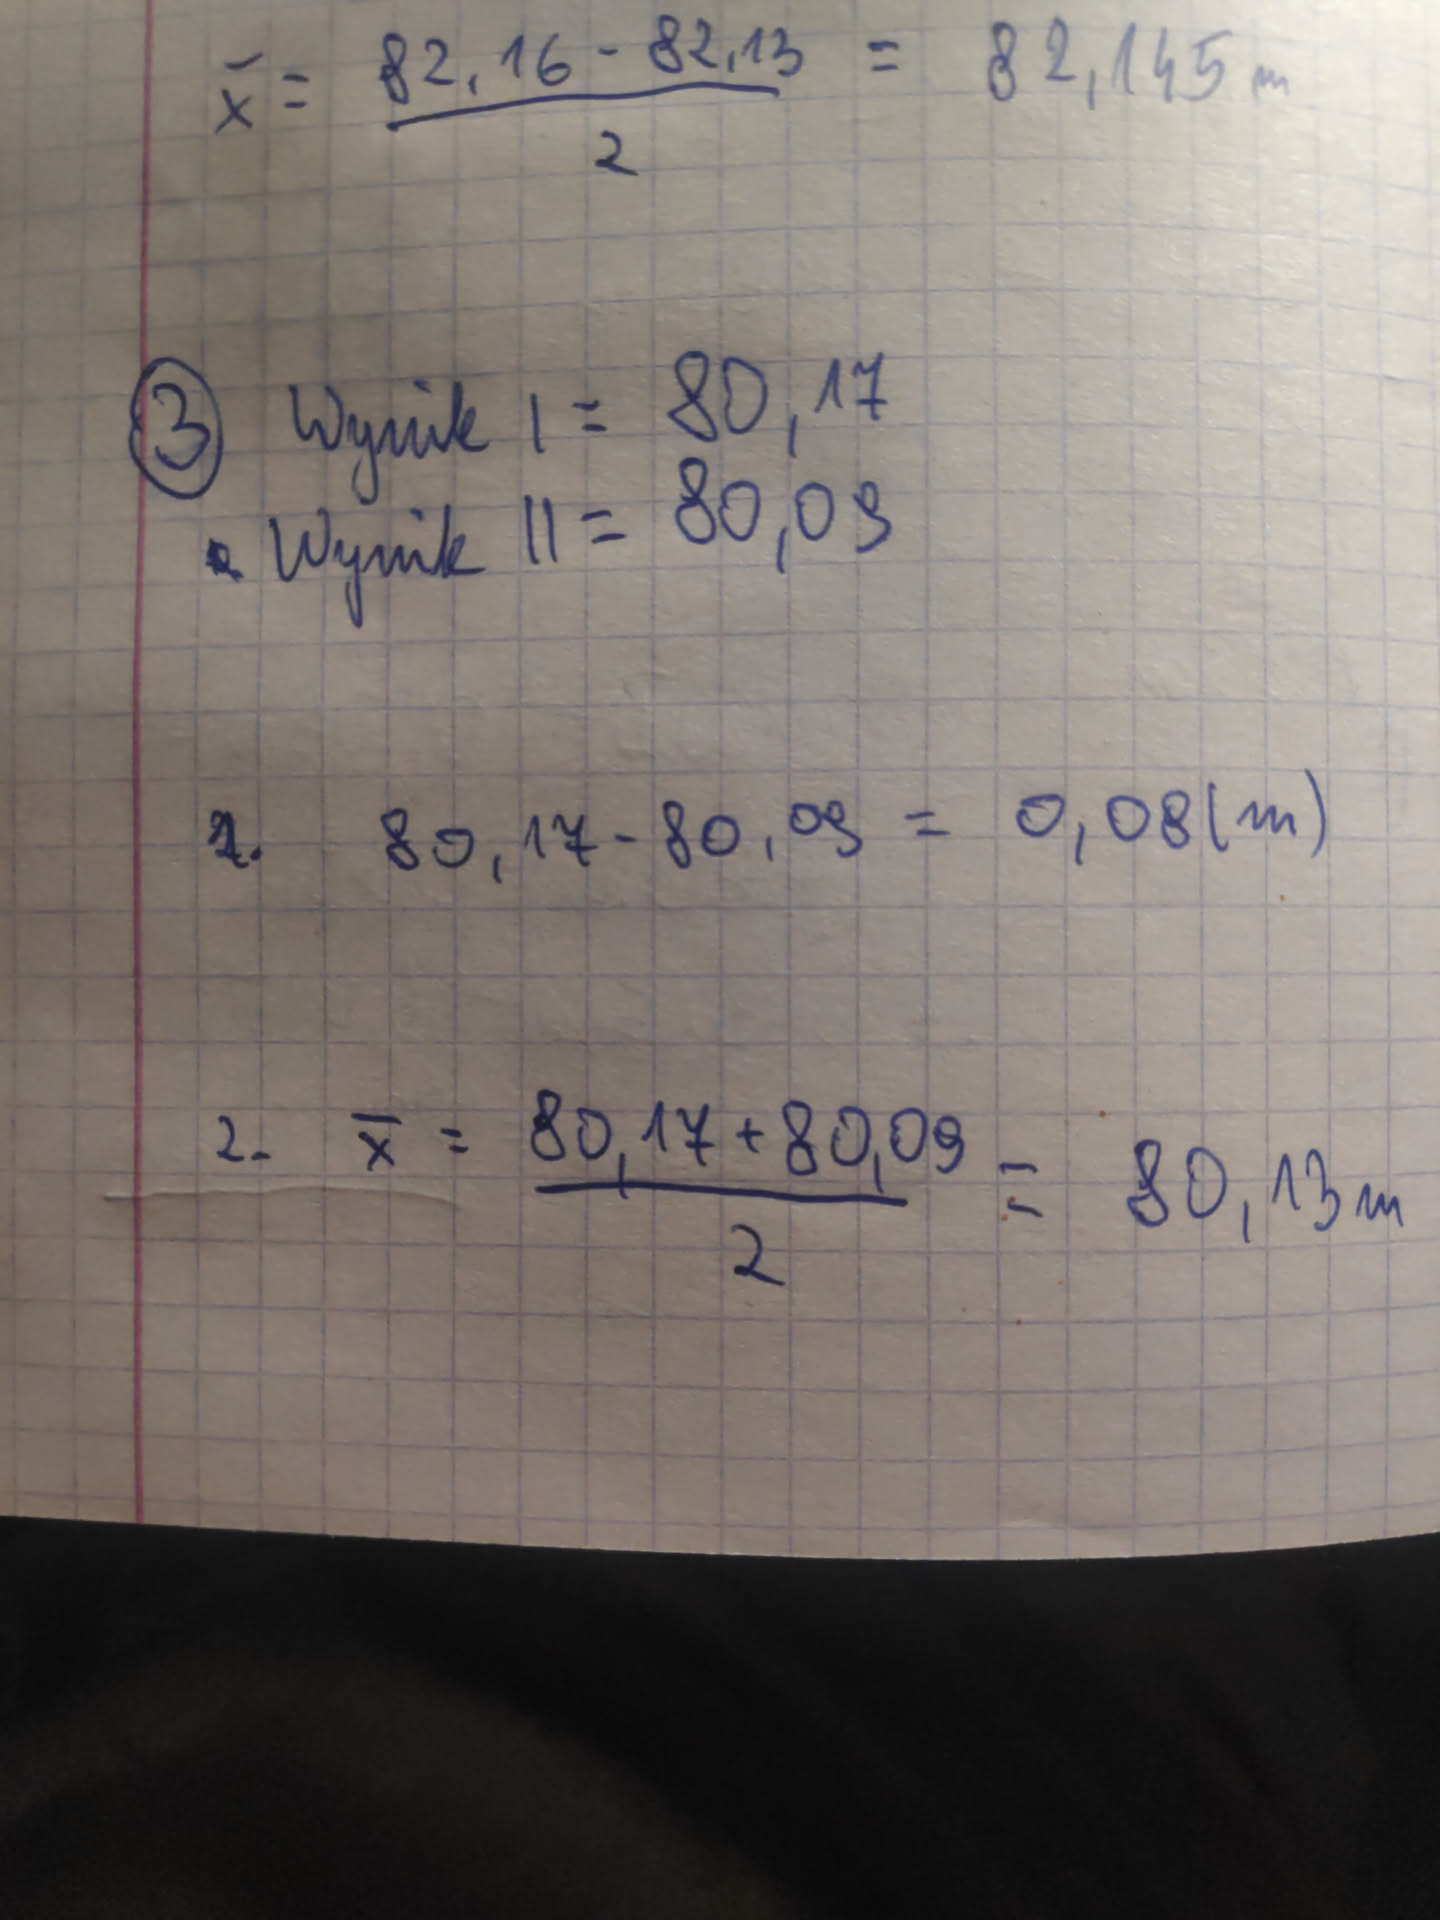 x̄ = 82,16 - 82,13 = 82,145 m
2
③ Wynik I = 80,17
Wynik II = 80,09
1. 80,17 - 80,09 = 0,08 (m)
2. x̄ = 80,17 + 80,09 = 80,13 m
2